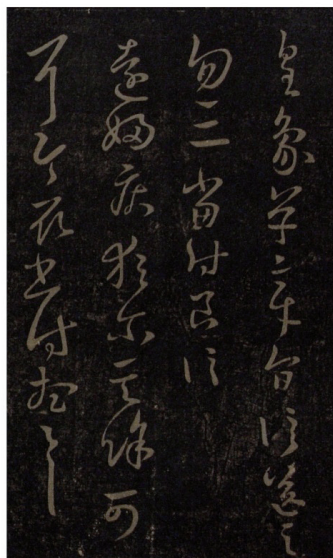 皇象草章旨信送之
勿三當付良信
遠婦疾猶尔其餘可
耳今取書付